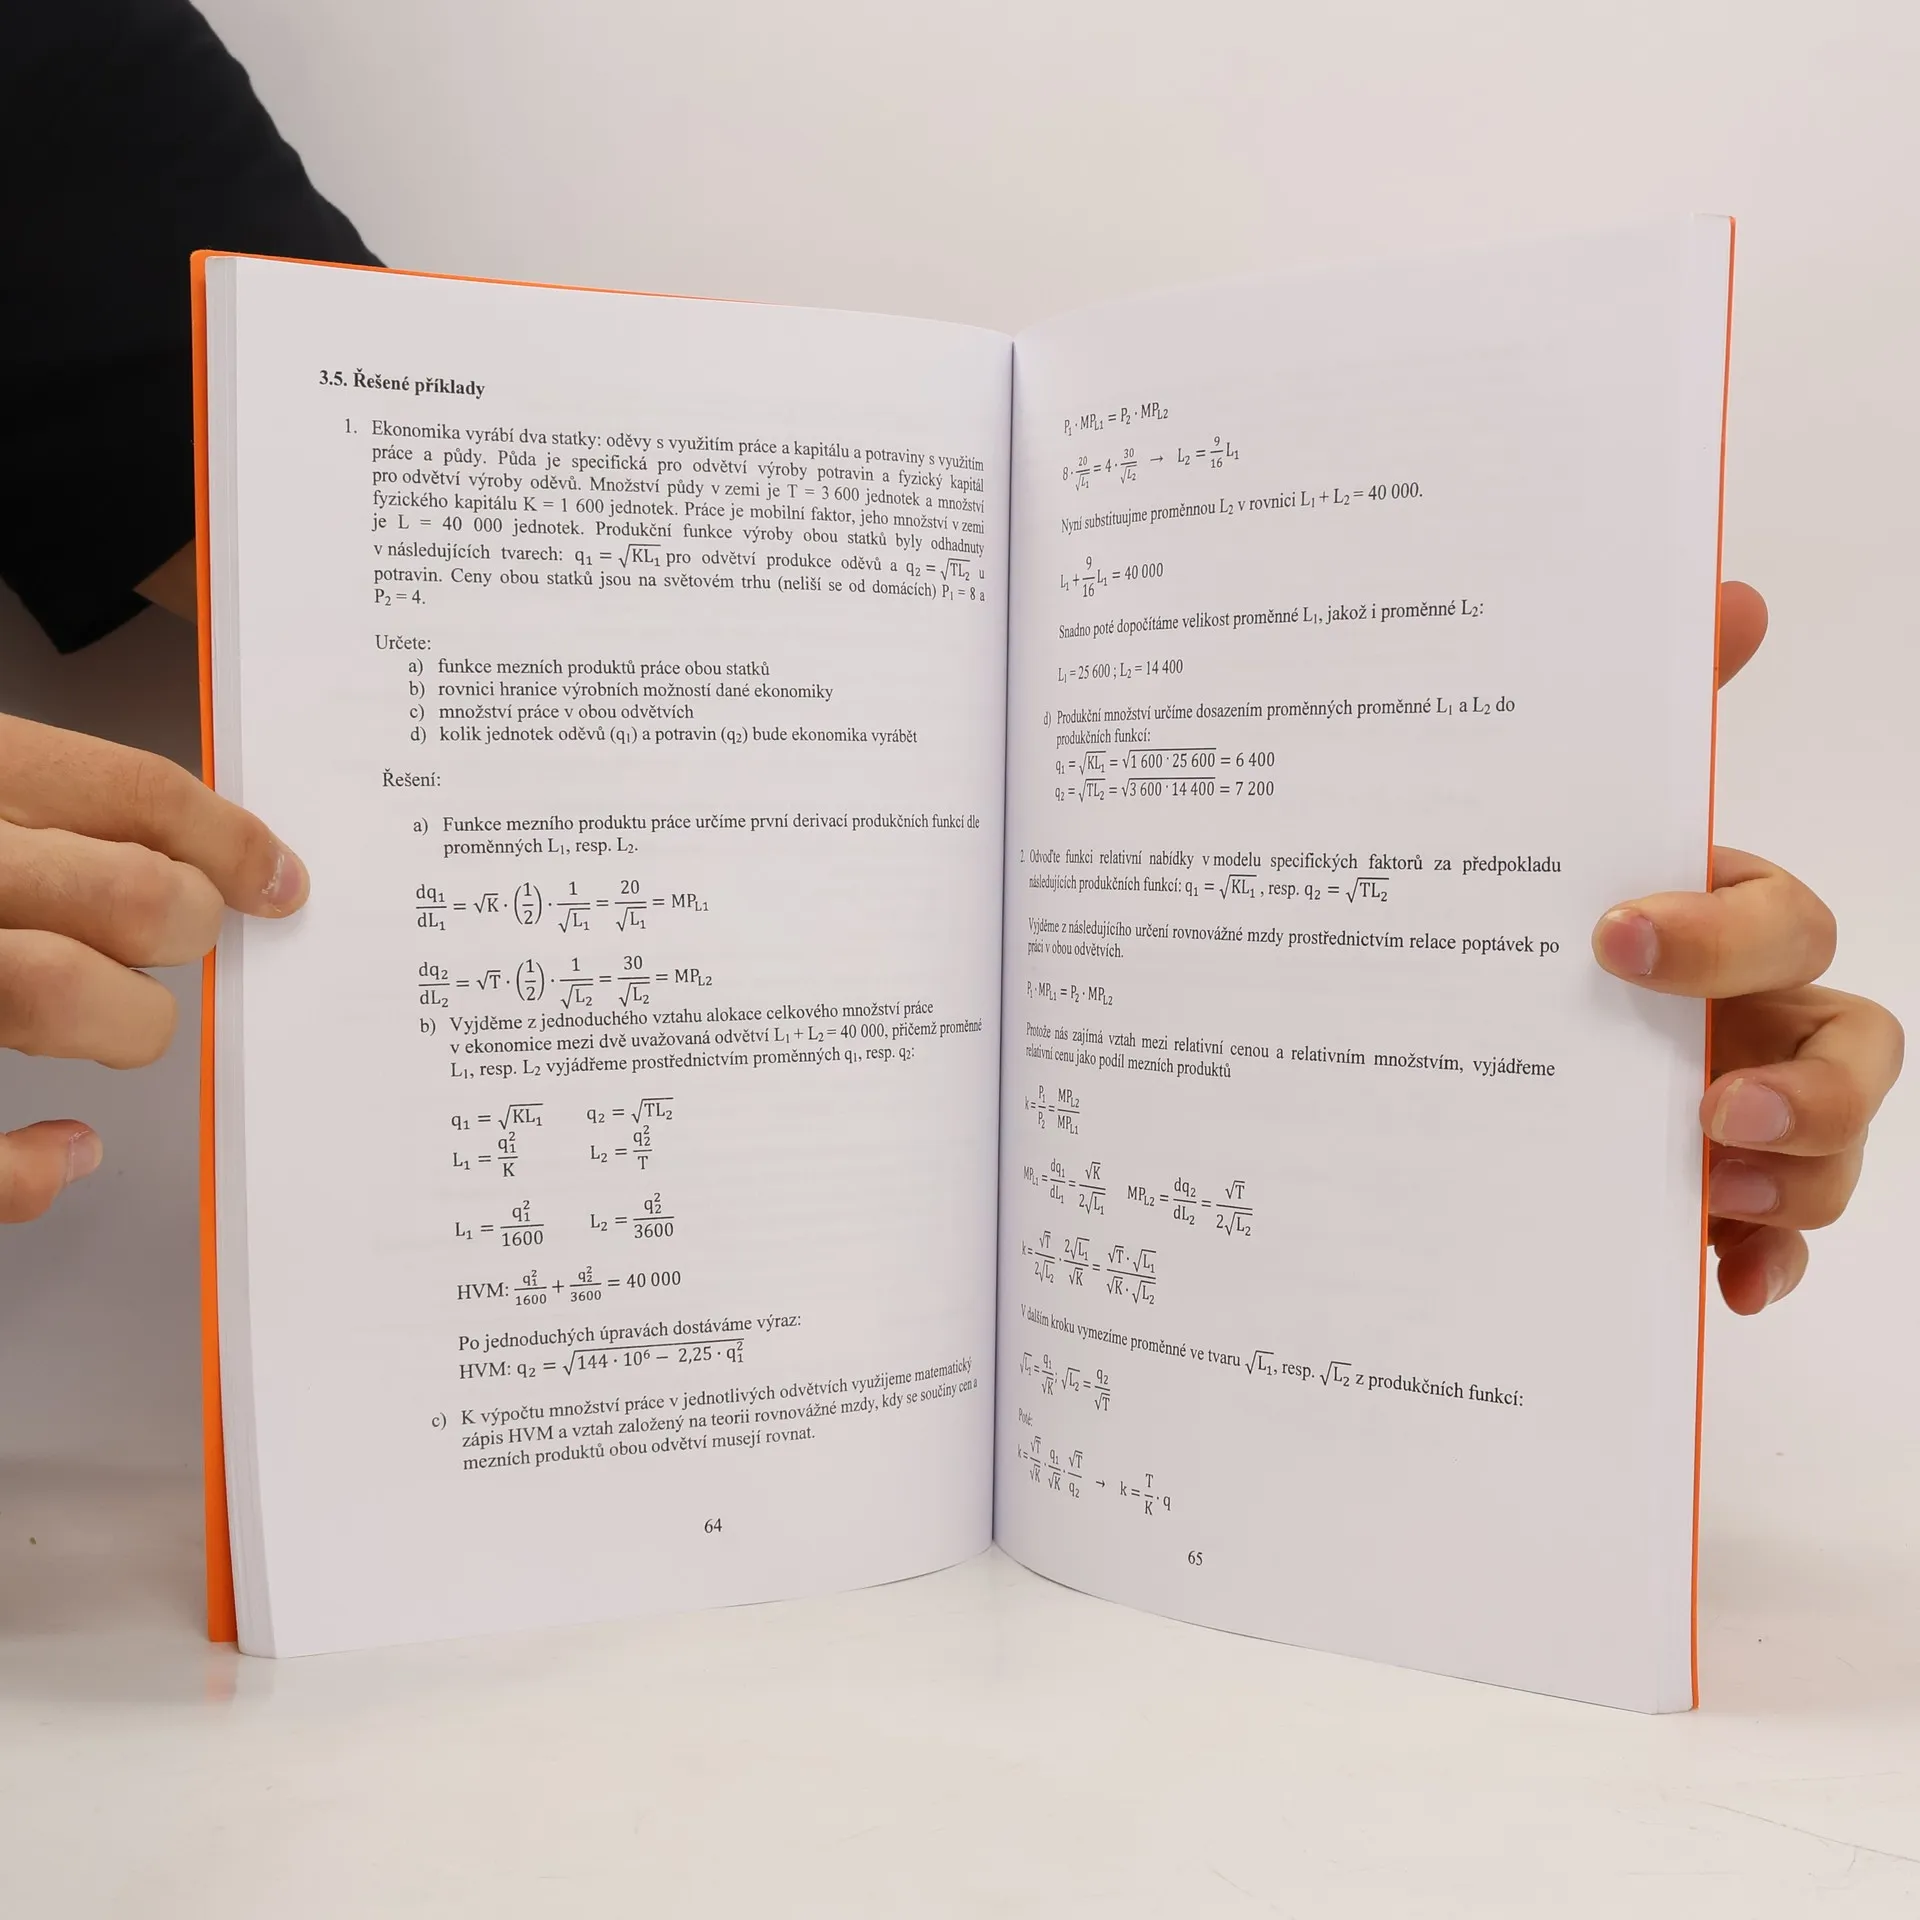 3.5. Řešené příklady
1. Ekonomika vyrábí dva statky: oděvy s využitím práce a kapitálu a potraviny s využitím
práce a půdy. Půda je specifická pro odvětví výroby potravin a fyzický kapitál
pro odvětví výroby oděvů. Množství půdy v zemi je T = 3 600 jednotek a množství
fyzického kapitálu K = 1 600 jednotek. Práce je mobilní faktor, jeho množství v zemi
je L = 40 000 jednotek. Produkční funkce výroby obou statků byly odhadnuty
v následujících tvarech: q₁ = √KL₁ pro odvětví produkce oděvů a q₂ = √TL₂ u
potravin. Ceny obou statků jsou na světovém trhu (neliší se od domácích) P₁ = 8 a
P₂ = 4.
Určete:
a) funkce mezních produktů práce obou statků
b) rovnici hranice výrobních možností dané ekonomiky
c) množství práce v obou odvětvích
d) kolik jednotek oděvů (q₁) a potravin (q₂) bude ekonomika vyrábět
Řešení:
a) Funkce mezního produktu práce určíme první derivací produkčních funkcí dle
proměnných L₁, resp. L₂.
dq₁/dL₁ = √K · (1/2) · 1/√L₁ = 20/√L₁ = MP_L1
dq₂/dL₂ = √T · (1/2) · 1/√L₂ = 30/√L₂ = MP_L2
b) Vyjděme z jednoduchého vztahu alokace celkového množství práce
v ekonomice mezi dvě uvažovaná odvětví L₁ + L₂ = 40 000, přičemž proměnné
L₁, resp. L₂ vyjádřeme prostřednictvím proměnných q₁, resp. q₂:
q₁ = √KL₁ q₂ = √TL₂
L₁ = q₁²/K L₂ = q₂²/T
L₁ = q₁²/1600 L₂ = q₂²/3600
HVM: q₁²/1600 + q₂²/3600 = 40 000
Po jednoduchých úpravách dostáváme výraz:
HVM: q₂ = √144 · 10⁶ − 2,25 · q₁²
c) K výpočtu množství práce v jednotlivých odvětvích využijeme matematický
zápis HVM a vztah založený na teorii rovnovážné mzdy, kdy se součiny cen a
mezních produktů obou odvětví musejí rovnat.
64
P₁ · MP_L1 = P₂ · MP_L2
8 · 20/√L₁ = 4 · 30/√L₂ → L₂ = 9/16 L₁
Nyní substituujme proměnnou L₂ v rovnici L₁ + L₂ = 40 000.
L₁ + 9/16 L₁ = 40 000
Snadno poté dopočítáme velikost proměnné L₁, jakož i proměnné L₂:
L₁ = 25 600 ; L₂ = 14 400
d) Produkční množství určíme dosazením proměnných proměnné L₁ a L₂ do
produkčních funkcí:
q₁ = √KL₁ = √1 600 · 25 600 = 6 400
q₂ = √TL₂ = √3 600 · 14 400 = 7 200
2. Odvoďte funkci relativní nabídky v modelu specifických faktorů za předpokladu
následujících produkčních funkcí: q₁ = √KL₁ , resp. q₂ = √TL₂
Vyjděme z následujícího určení rovnovážné mzdy prostřednictvím relace poptávek po
práci v obou odvětvích.
P₁ · MP_L1 = P₂ · MP_L2
Protože nás zajímá vztah mezi relativní cenou a relativním množstvím, vyjádřeme
relativní cenu jako podíl mezních produktů
k = P₁/P₂ = MP_L2/MP_L1
MP_L1 = dq₁/dL₁ = √K/2√L₁ MP_L2 = dq₂/dL₂ = √T/2√L₂
k = √T/2√L₂ · 2√L₁/√K = √T · √L₁/√K · √L₂
V dalším kroku vymezíme proměnné ve tvaru √L₁, resp. √L₂ z produkčních funkcí:
√L₁ = q₁/√K ; √L₂ = q₂/√T
Poté:
k = √T/√K · q₁/√K · √T/q₂ → k = T/K · q
65